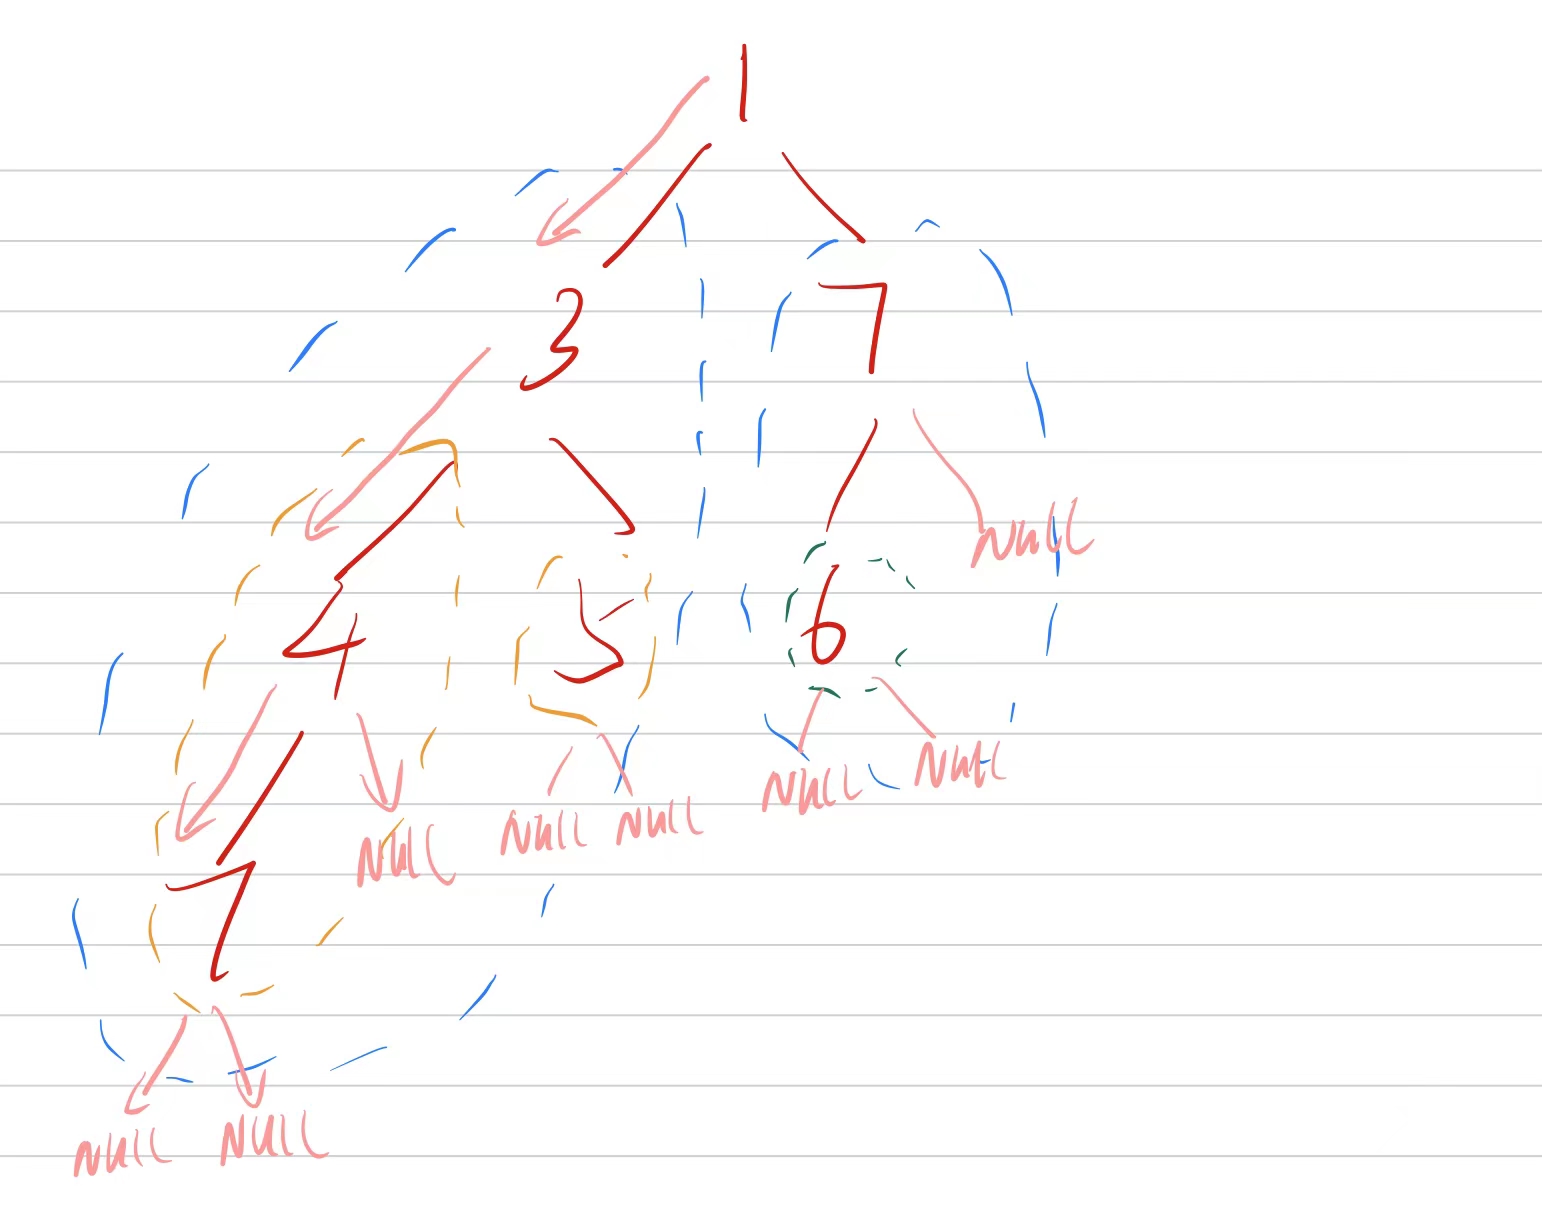 1
3 7
null
4 5 6
null null
null null null
7
null null